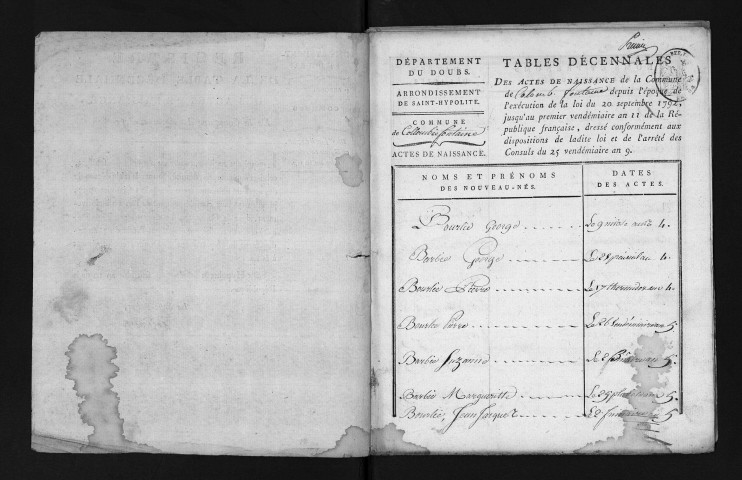 DÉPARTEMENT
DU DOUBS.
ARRONDISSEMENT
DE SAINT-HYPOLITE.
COMMUNE
de Collombiefontaine
ACTES DE NAISSANCE.
TABLES DÉCENNALES
DES ACTES DE NAISSANCE de la Commune
de Colomb. fontaine depuis l'époque de
l'exécution de la loi du 20 septembre 1792,
jusqu'au premier vendémiaire an 11 de la Ré-
publique française, dressé conformément aux
dispositions de ladite loi et de l'arrêté des
Consuls du 25 vendémiaire an 9.
NOMS ET PRÉNOMS
DES NOUVEAU-NÉS.
DATES
DES ACTES.
Bourlié George Le 9 4.
Barbée George Le 28 4.
Bourlié Pierre Le 17 thermidor an 4.
Bourlié Pierre Le 26 vendémiaire an 5.
Barbée Suzanne Le 2 5.
Barbée Marguerite Le 29 5.
Bourlié, Jean Jaques Le 2 5